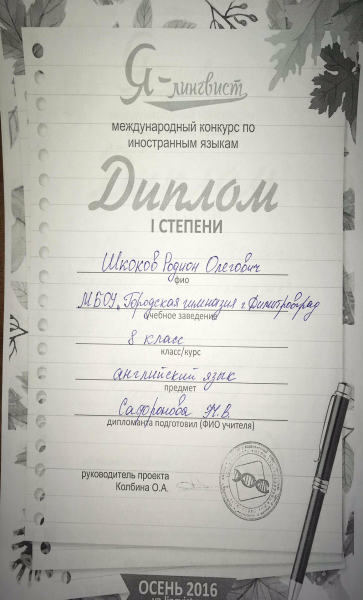 Я-лингвист
международный конкурс по
иностранным языкам
Диплом
I СТЕПЕНИ
Шкоков Родион Олегович
фио
МБОУ "Городская гимназия г. Димитровград
учебное заведение
8 класс
класс/курс
английский язык
предмет
Сафронова Н.В.
дипломанта подготовил (ФИО учителя)
руководитель проекта
Колбина О.А.
ОСЕНЬ 2016